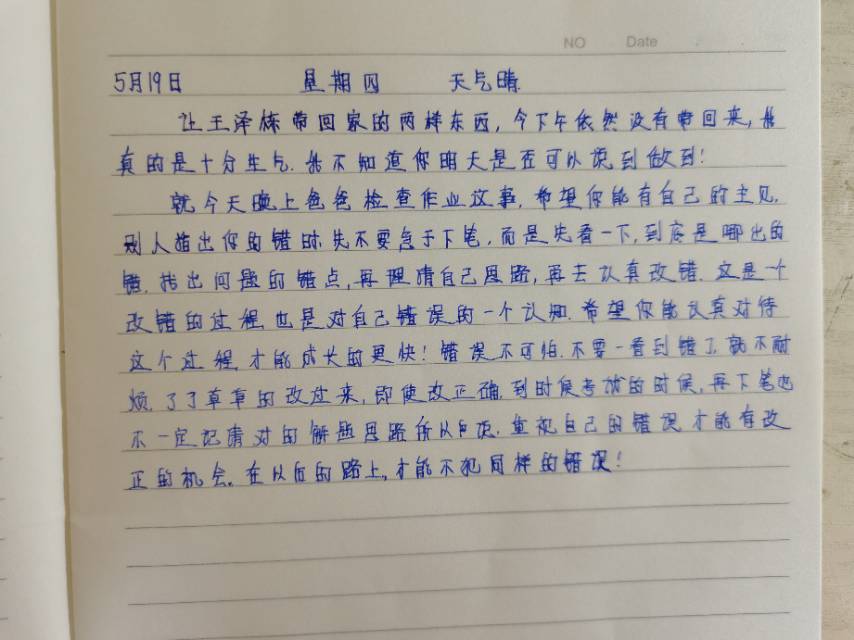 NO Date
5月19日 星期四 天气晴
让王泽栋带回家的两样东西,今下午依然没有带回来,我
真的是十分生气.我不知道你明天是否可以说到做到!
就今天晚上爸爸检查作业这事,希望你能有自己的主见.
别人指出你的错时,先不要急于下笔,而是先看一下,到底是哪出的
错.找出问题的错点,再理清自己思路,再去认真改错.这是一个
改错的过程,也是对自己错误的一个认知.希望你能认真对待
这个过程,才能成长的更快!错误不可怕.不要一看到错了,就不耐
烦.了了草草的改过来,即使改正确,到时候考试的时候,再下笔也
不一定记清对的解题思路.所以必须.重视自己的错误才能有改
正的机会.在以后的路上,才能不犯同样的错误!